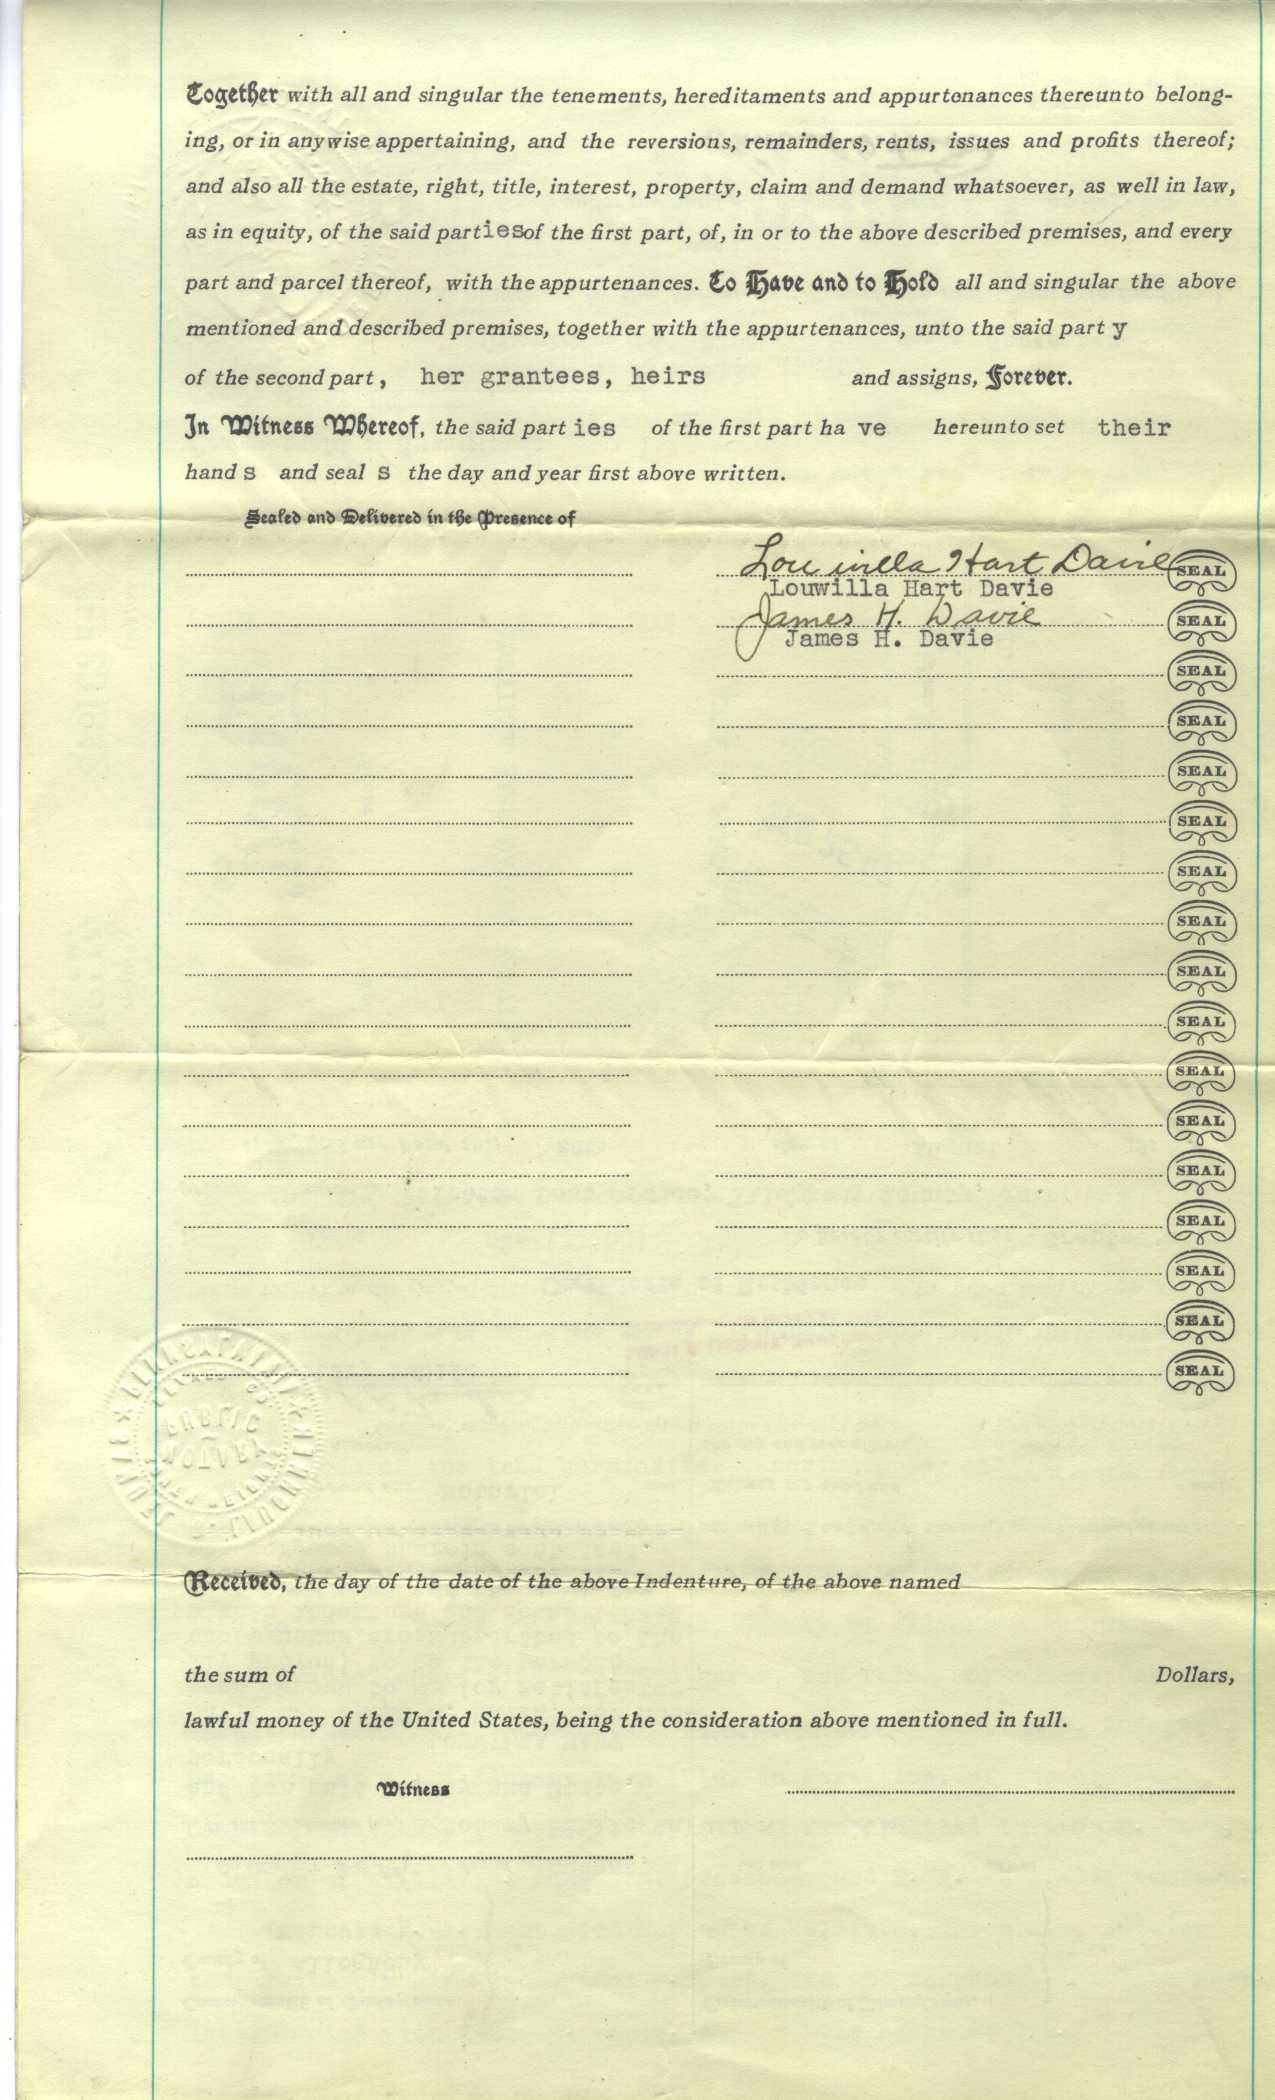 Together with all and singular the tenements, hereditaments and appurtenances thereunto belong-
ing, or in anywise appertaining, and the reversions, remainders, rents, issues and profits thereof;
and also all the estate, right, title, interest, property, claim and demand whatsoever, as well in law,
as in equity, of the said parties of the first part, of, in or to the above described premises, and every
part and parcel thereof, with the appurtenances. To Have and to Hold all and singular the above
mentioned and described premises, together with the appurtenances, unto the said part y
of the second part, her grantees, heirs and assigns, Forever.
In Witness Whereof, the said part ies of the first part ha ve hereunto set their
hand s and seal s the day and year first above written.
Sealed and Delivered in the Presence of
Louwilla Hart Davie SEAL
Louwilla Hart Davie
James H. Davie SEAL
James H. Davie
SEAL
SEAL
SEAL
SEAL
SEAL
SEAL
SEAL
SEAL
SEAL
SEAL
SEAL
SEAL
SEAL
SEAL
SEAL
NOTARY
PUBLIC
Received, the day of the date of the above Indenture, of the above named
the sum of Dollars,
lawful money of the United States, being the consideration above mentioned in full.
Witness